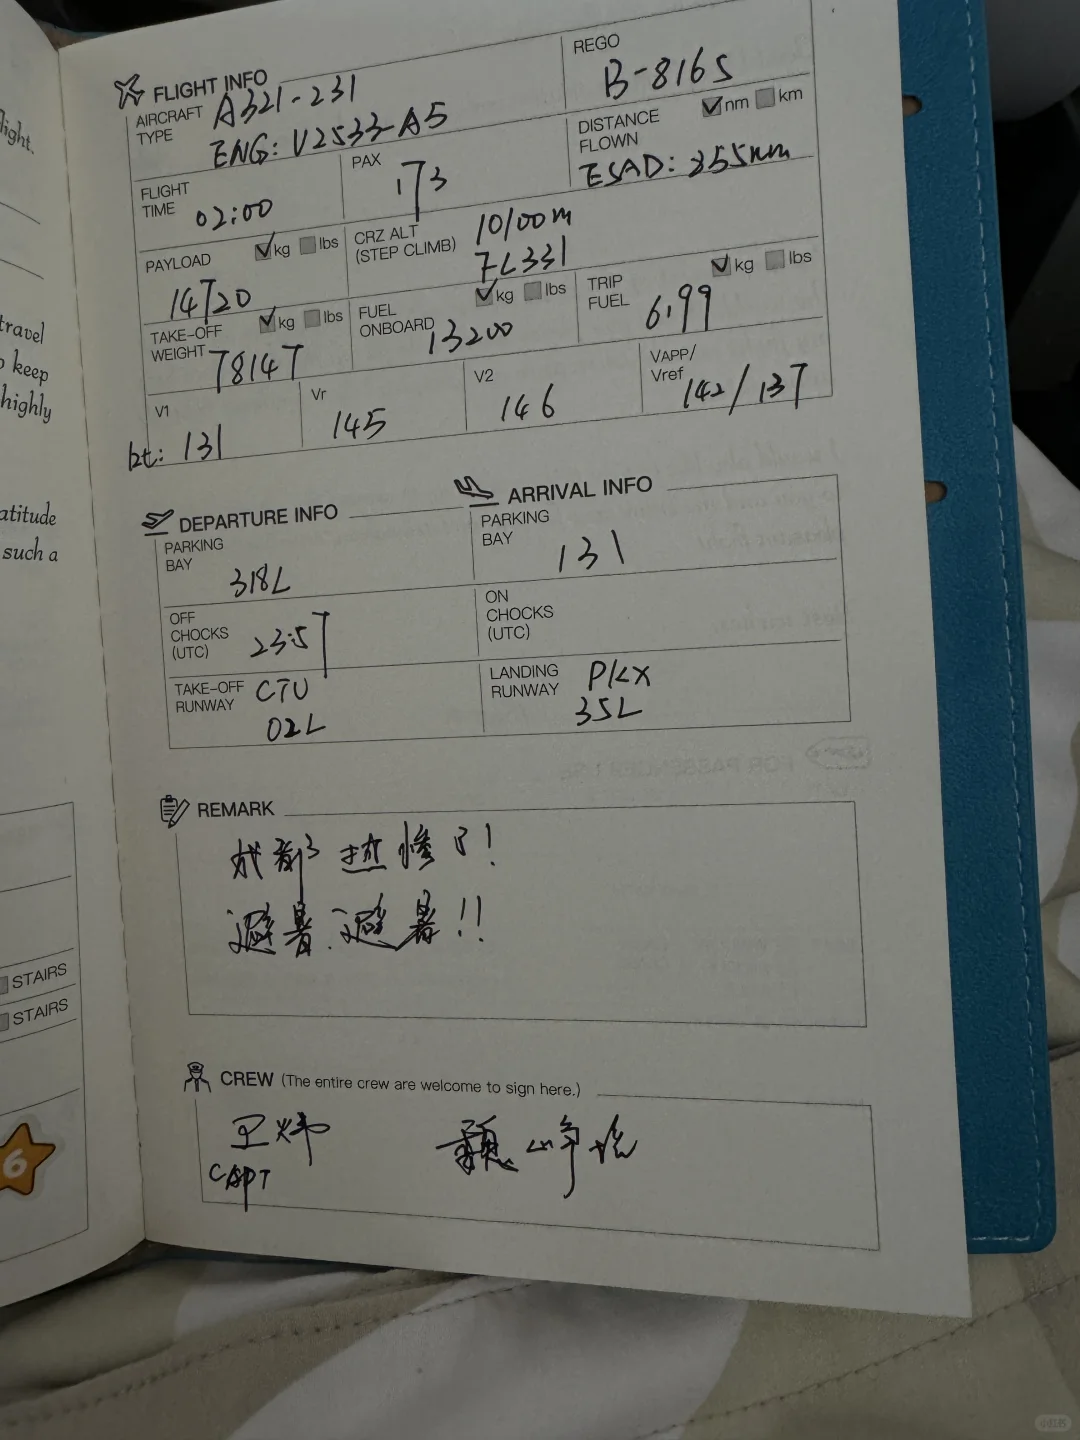 light.
travel
o keep
highly
atitude
such a
STAIRS
STAIRS
6
FLIGHT INFO
AIRCRAFT TYPE A321-231
ENG: V2533-A5
REGO
B-8165
FLIGHT TIME 02:00
PAX 173
DISTANCE FLOWN nm km
ESAD: 855nm
PAYLOAD kg lbs
14720
CRZ ALT (STEP CLIMB) 10100m
FL331
TAKE-OFF WEIGHT kg lbs
78147
FUEL ONBOARD kg lbs
13200
TRIP FUEL kg lbs
6.99
V1
131
Vr
145
V2
146
VAPP/ Vref
142/137
DEPARTURE INFO
PARKING BAY
318L
OFF CHOCKS (UTC) 23:57
TAKE-OFF RUNWAY CTU
02L
ARRIVAL INFO
PARKING BAY
131
ON CHOCKS (UTC)
LANDING RUNWAY PKX
35L
REMARK
成都热惨了!
避暑.避暑!!
CREW (The entire crew are welcome to sign here.)
CAPT
小红书